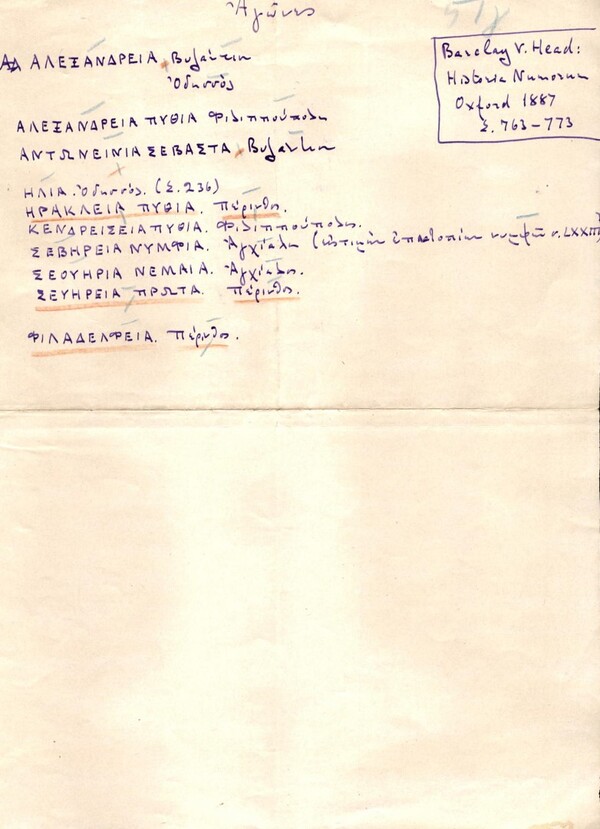 Ἀγῶνες
57γ
Barclay V. Head:
Historia Numorum
Oxford 1887
Σ. 763-773
ΑΛΕΞΑΝΔΡΕΙΑ, Βυζάντιον
Ὀδησσός
ΑΛΕΞΑΝΔΡΕΙΑ ΠΥΘΙΑ Φιλιππούπολη
ΑΝΤΩΝΕΙΝΙΑ ΣΕΒΑΣΤΑ, Βυζάντιον
ΗΛΙΑ. Ὀδησσός. (Σ. 236)
ΗΡΑΚΛΕΙΑ ΠΥΘΙΑ. Πέρινθος.
ΚΕΝΔΡΕΙΣΕΙΑ ΠΥΘΙΑ. Φιλιππούπολις.
ΣΕΒΗΡΕΙΑ ΝΥΜΦΙΑ. Ἀγχίαλη νυμφῶν σ. LXXIII)
ΣΕΟΥΗΡΙΑ ΝΕΜΑΙΑ. Ἀγχίαλος.
ΣΕΥΗΡΕΙΑ ΠΡΩΤΑ. Πέρινθος.
ΦΙΛΑΔΕΛΦΕΙΑ. Πέρινθος.